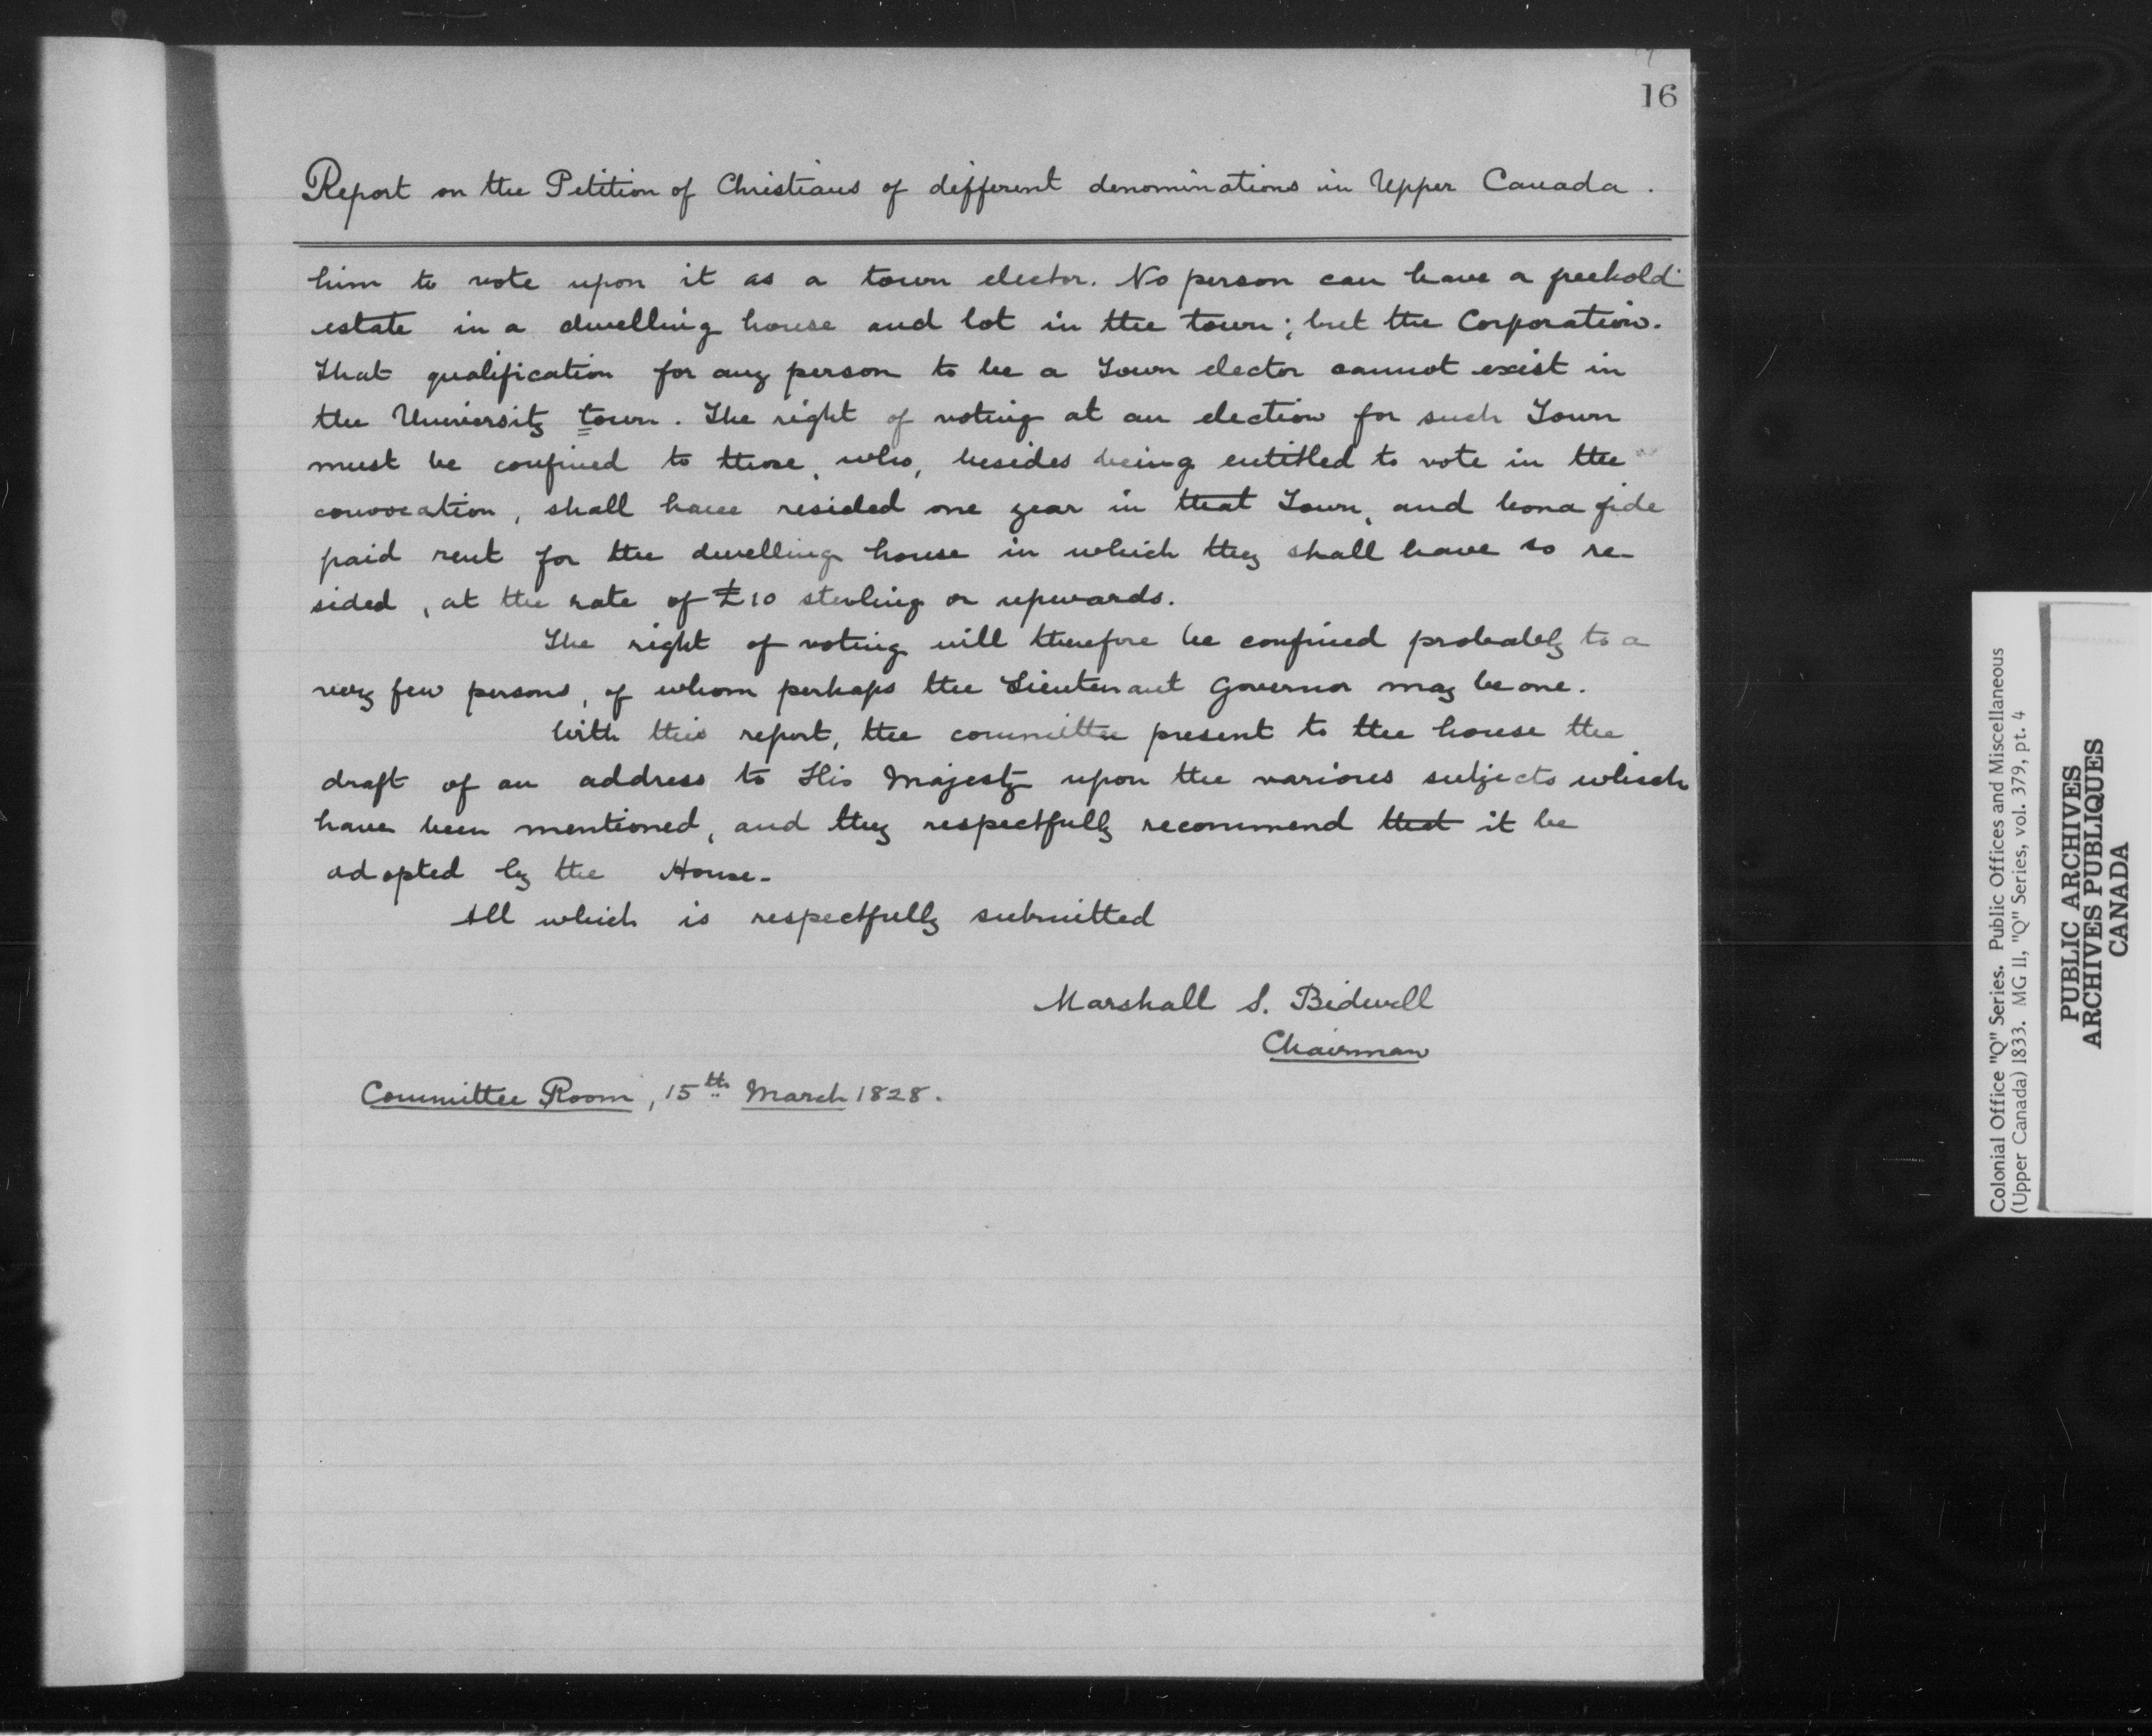 16
Report on the Petition of Christians of different denominations in Upper Canada.
him to vote upon it as a town elector. No person can have a freehold
estate in a dwelling house and lot in the town; but the Corporation.
That qualification for any person to be a Town elector cannot exist in
the University town. The right of voting at an election for such Town
must be confined to those, who, besides being entitled to vote in the
convocation, shall have resided one year in that Town, and bona fide
paid rent for the dwelling house in which they shall have so re-
sided, at the rate of £10 sterling or upwards.
The right of voting will therefore be confined probably to a
very few persons, of whom perhaps the Lieutenant Governor may be one.
With this report, the committee present to the house the
draft of an address to His Majesty upon the various subjects which
have been mentioned, and they respectfully recommend that it be
adopted by the House.
All which is respectfully submitted
Marshall S. Bidwell
Chairman
Committee Room, 15th March 1828.
Colonial Office "Q" Series. Public Offices and Miscellaneous
(Upper Canada) 1833. MG 11, "Q" Series, vol. 379, pt. 4
PUBLIC ARCHIVES
ARCHIVES PUBLIQUES
CANADA